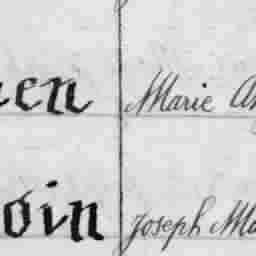 en Marie An
oin Joseph Ma